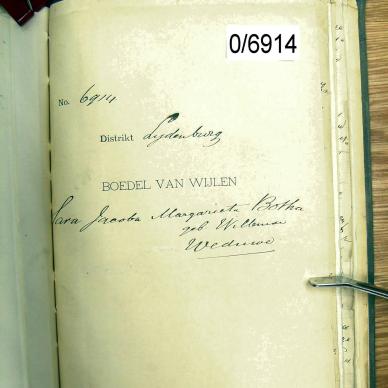 0/6914
No. 6914
Distrikt Lydenburg
BOEDEL VAN WIJLEN
Sara Jacoba Margarieta Botha
geb. Willemse
Weduwe